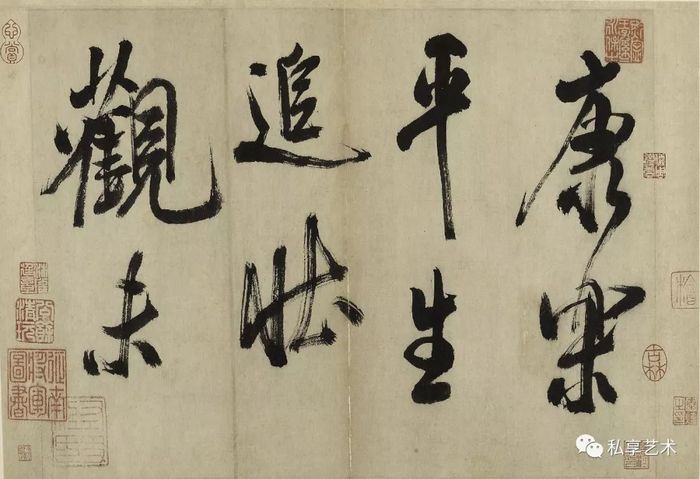 康樂
平生
追壯
觀未
私享艺术